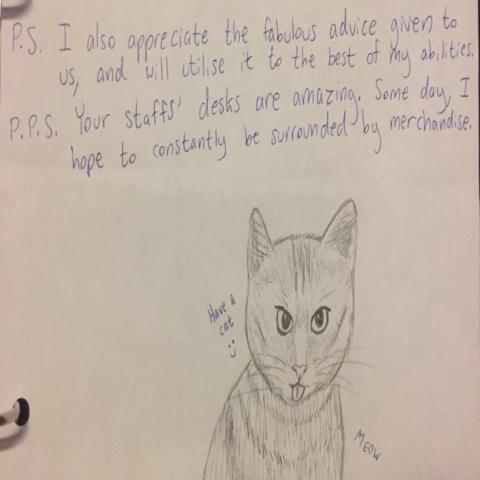 P.S. I also appreciate the fabulous advice given to
us, and will utilise it to the best of my abilities.
P.P.S. Your staffs' desks are amazing. Some day, I
hope to constantly be surrounded by merchandise.
Have a
cat
:)
MEOW